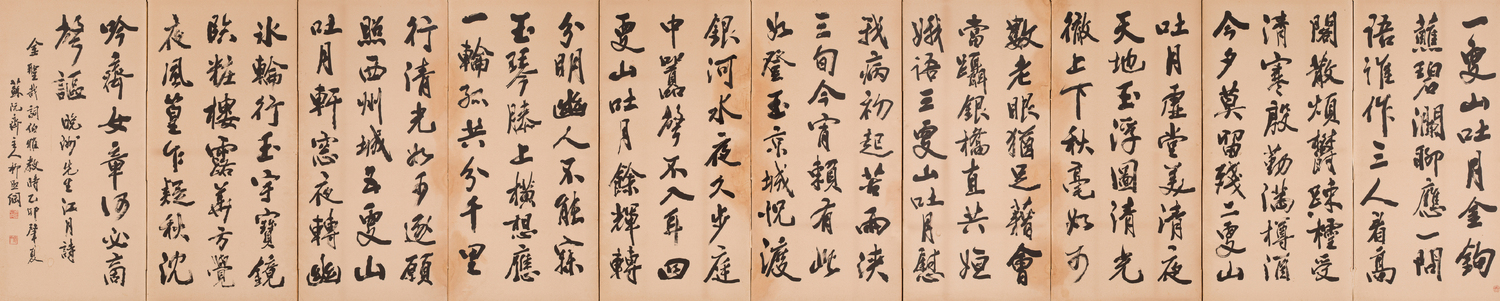 一更山吐月金鉤
蘸碧瀾聊應一問
語誰作三人看高
閣散煩欝踈櫺受
清寒殷勤滿樽酒
今夕莫留殘二更山
吐月虛堂美清夜
天地玉浮圖清光
徹上下秋毫如可
數老眼猶足藉會
當躡銀橋直共姮
娥語三更山吐月慰
我病初起苦雨浹
三旬今宵賴有此
如登玉京城怳渡
銀河水夜久步庭
中囂聲不入耳四
更山吐月餘輝轉
分明幽人不能寐
玉琴膝上橫想應
一輪孤共分千里
行清光如可逐願
照西州城五更山
吐月軒窓夜轉幽
氷輪行玉宇寶鏡
臨粧樓露華方覺
夜風篁乍疑秋沈
吟齊女章何必商
聲謳 晩洲先生江月詩
金聖哉詞伯雅教時乙卯肇夏
蘇阮齋主人柳熙綱